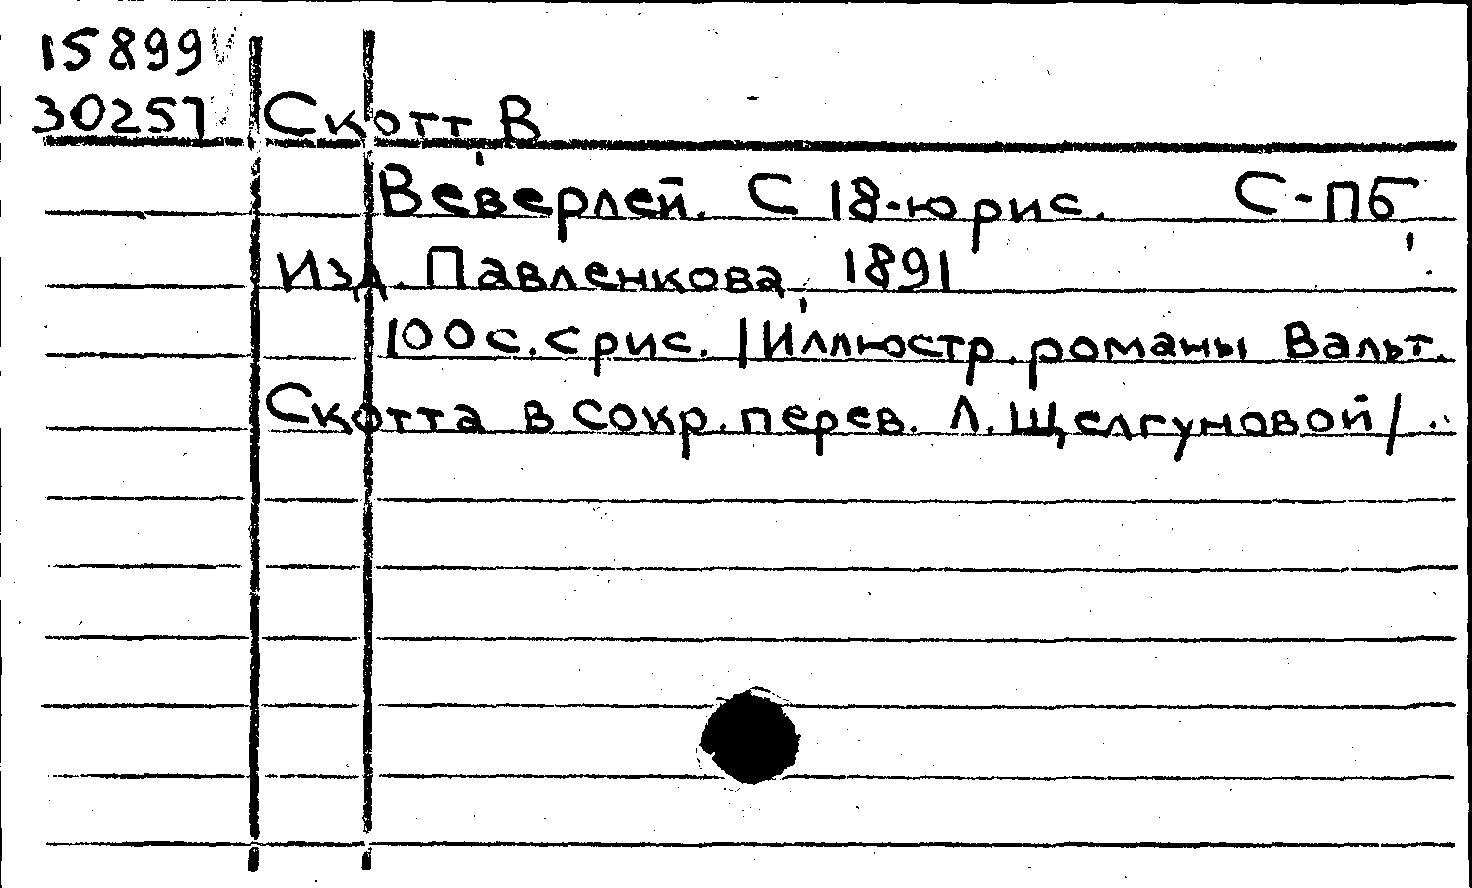 15899
30257 Скотт, В
Веверлей. С 18-ю рис. С-Пб,
Изд. Павленкова, 1891
100с. с рис. /Иллюстр. романы Вальт.
Скотта в сокр. перев. Л. Щелгуновой/